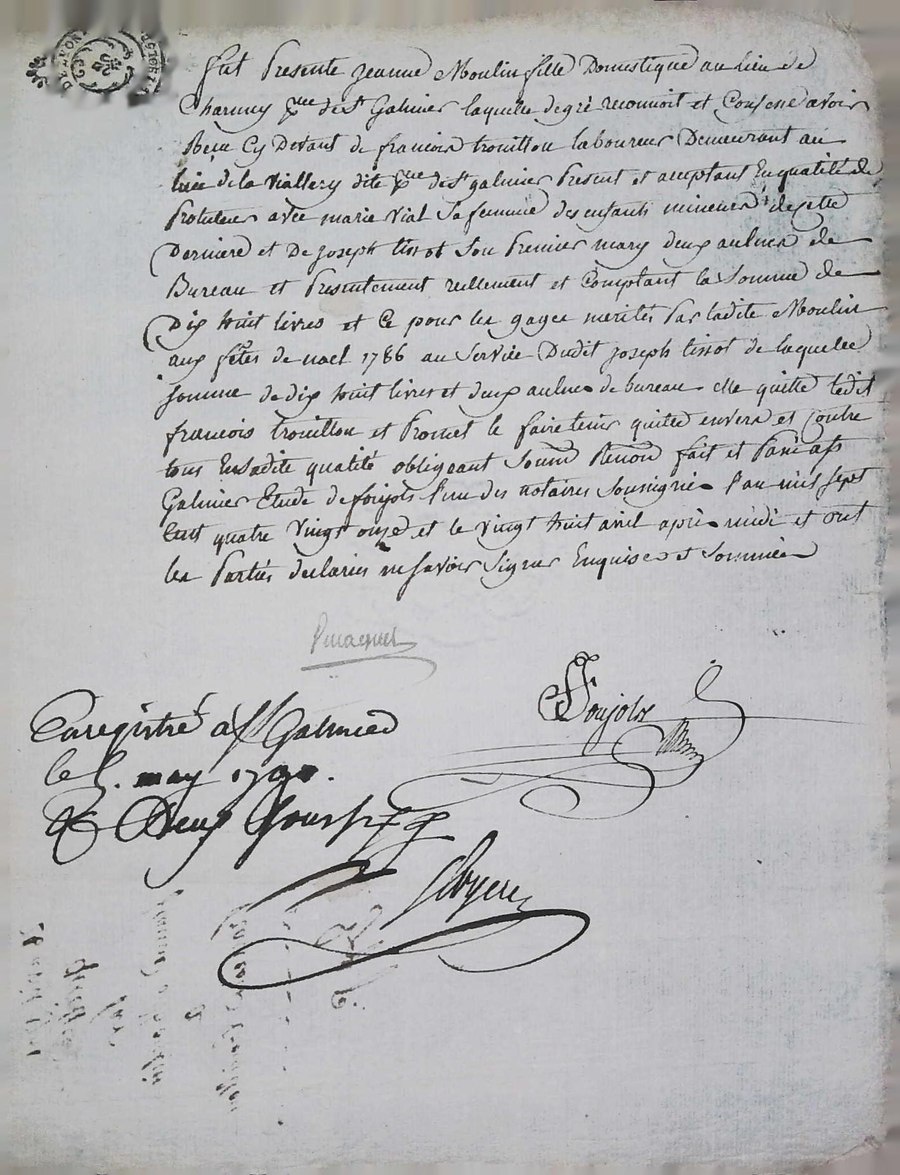 fut Presente jeanne Moulin fille Domestique au Lieu de
Charmey psse de St Galmier laquelle de gré reconnoit et Confesse avoir
Reçu Cy Devant de francois trouillou laboureur Demeurant au
lieu de la Viallery dite psse de St galmier Present et acceptant En qualité de
Protuteur avec marie Vial Sa femme des enfants mineurs de cette
Derniere et De joseph tissot Son Premier mary deux aulnes de
Bureau et Presentement reellement et Comptant la Somme de
Dix huit livres et ce pour les gages merités Par ladite Moulin
aux fêtes de noel 1786 au Service Dudit joseph tissot de laquelle
somme de dix huit livres et deux aulnes de bureau elle quitte ledit
francois trouillou et Promet le faire tenir quitte envers et Contre
tous En sadite qualité obligeant Soumd Renond fait et Passé a St
Galmier Etude de foujols l'un des notaires Soussignés l'an mil sept
Cent quatre Vingt onze et le Vingt huit avril après midi et ont
les Parties declarées ne savoir Signer Enquises et Sommées
Foujols
Enregistré a St Galmier
le may